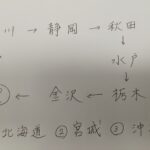 川 → 静岡 → 秋田
↓
水戸
↓
← 金沢 ← 栃木
北海道 ② 宮城 ③ 沖